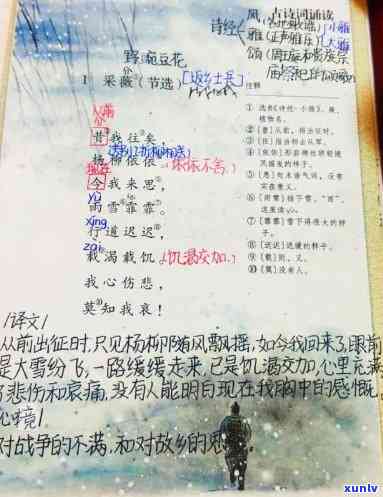 古诗词诵读
诗经
风
雅(正声雅乐)
小雅
大雅
颂(周王庭和贵族宗
庙祭祀的颂歌)
野豌豆花
1 采薇(节选)
[返乡士兵]
注释
从前
昔我往矣,
杨柳依依。
(依依不舍)
现在
今我来思,
yù
雨雪霏霏。
xíng
行道迟迟,
zài
载渴载饥。
(饥渴交加)
我心伤悲,
莫知我哀!
① 选自《诗经·小雅》。薇,
植物名。
② 〔昔〕从前,指出征时。
③ 〔往〕指当初从军。
④ 〔依依〕形容柳丝轻柔
随风摇曳的样子。
⑤ 〔思〕句末语气词,没有
实在意义。
⑥ 〔雨雪〕指下雪。“雨”,
这里读yù。
⑦ 〔霏霏〕雪下得很大的样
子。
⑧ 〔迟迟〕迟缓的样子。
⑨ 〔载〕则,又。
⑩ 〔莫〕没有人。
/译文/
从前出征时,只见杨柳随风飘摇,如今我回来了,眼前
是大雪纷飞,一路缓缓走来,已是饥渴交加,心里充满
了悲伤和哀痛,没有人能明白现在我胸中的感慨
心境!
对战争的不满,和对故乡的思
xunlv